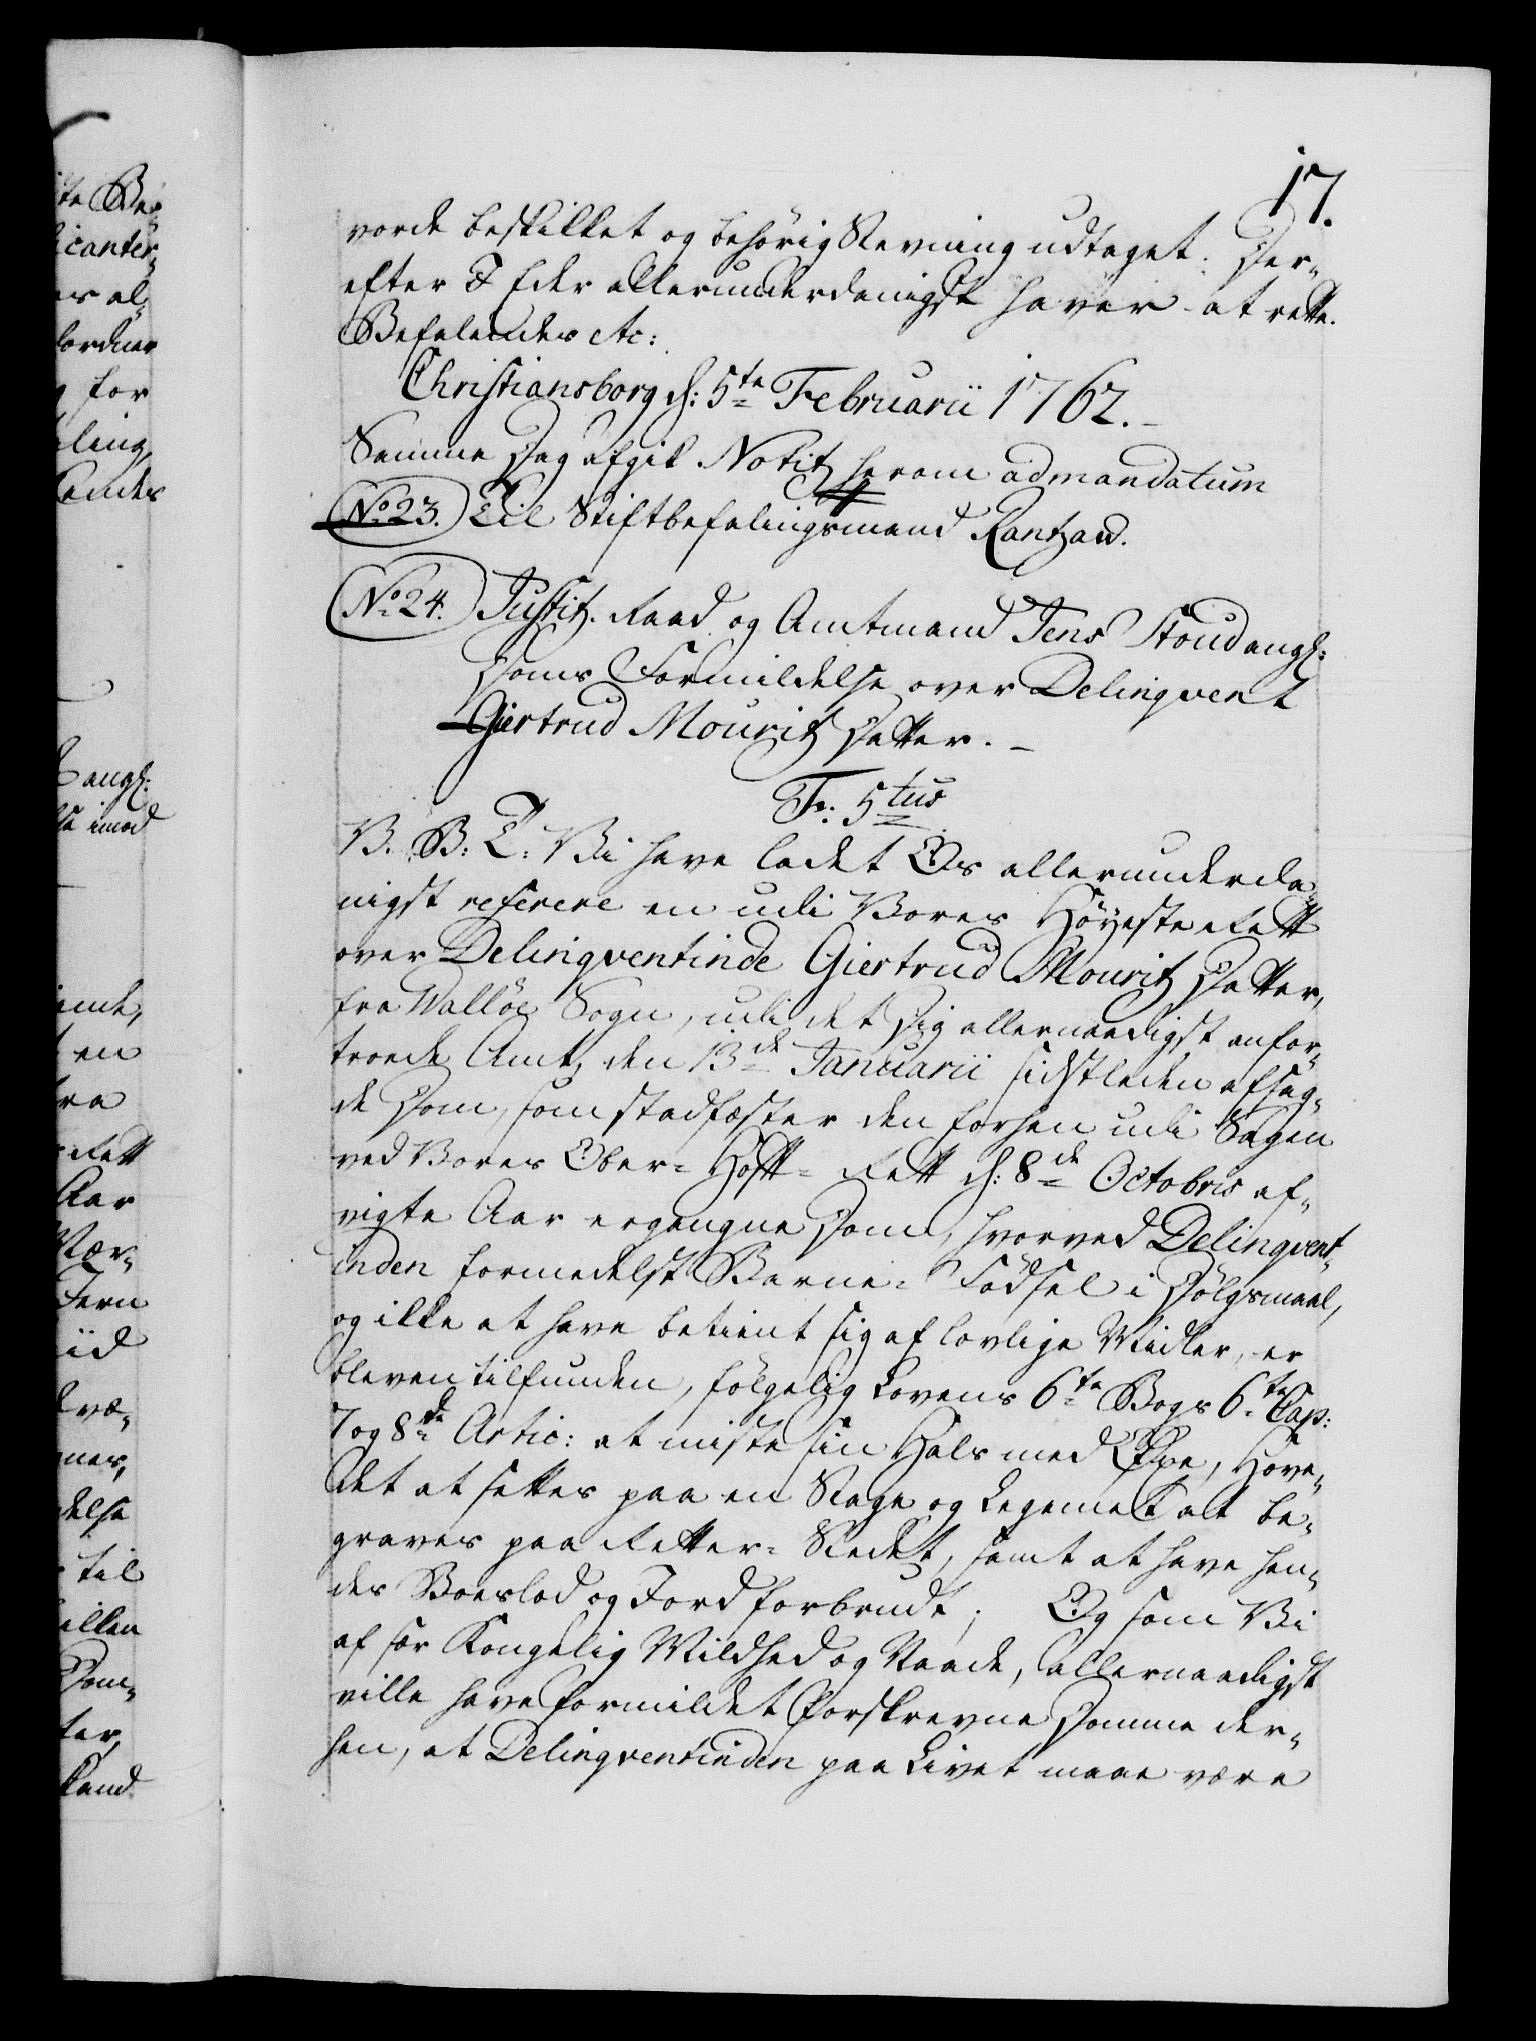 17.
vorde beskikket og behörig Stevning udtaget: Der-
efter I Eder allerunderdanigst haver at rette.
Befalendes etc:
Christiansborg d: 5te Februarii 1762.
Samme Dag afgik Notitz herom ad mandatum
No. 23. Til Stiftbefalingsmand Rantzau.
No. 24. Justitz-Raad og Amtmand Jens Stoud angl:
Doms Formildelse over Delinqvent
Giertrud Mouritz Datter.
Fr: 5tus
V. B: T: Vi have ladet Os allerunderda-
nigst referere en udi Vores Höyeste Rett
over Delinqventinde Giertrud Mouritz Datter,
fra Walløe Sogn, udi det Dig allernaadigst anfor-
troede Amt, den 13de Januarii sidstleden afsag-
de Dom, som stadfæster den forhen udi Sagen
ved Vores Ober-Hoff-Rett d: 8de Octobris af-
vigte Aar ergangne Dom, hvorved Delinqvent-
inden formedelst Barne-Födsel i Dölgsmaal,
og ikke at have betient sig af lovlige Midler, er
bleven tilfunden, fölgelig Lovens 6te Bogs 6te Cap:
7 og 8de Artic: at miste sin Hals med Öxe, Hove-
det at settes paa en Stage og Legemet at be-
graves paa Retter-Stedet, samt at have hen-
des Boeslod og Jord forbrudt; Og som Vi
af sær Kongelig Mildhed og Naade, allernaadigst
ville have formildet forskrevne Domme der-
hen, at Delinqventinden paa Livet maae være